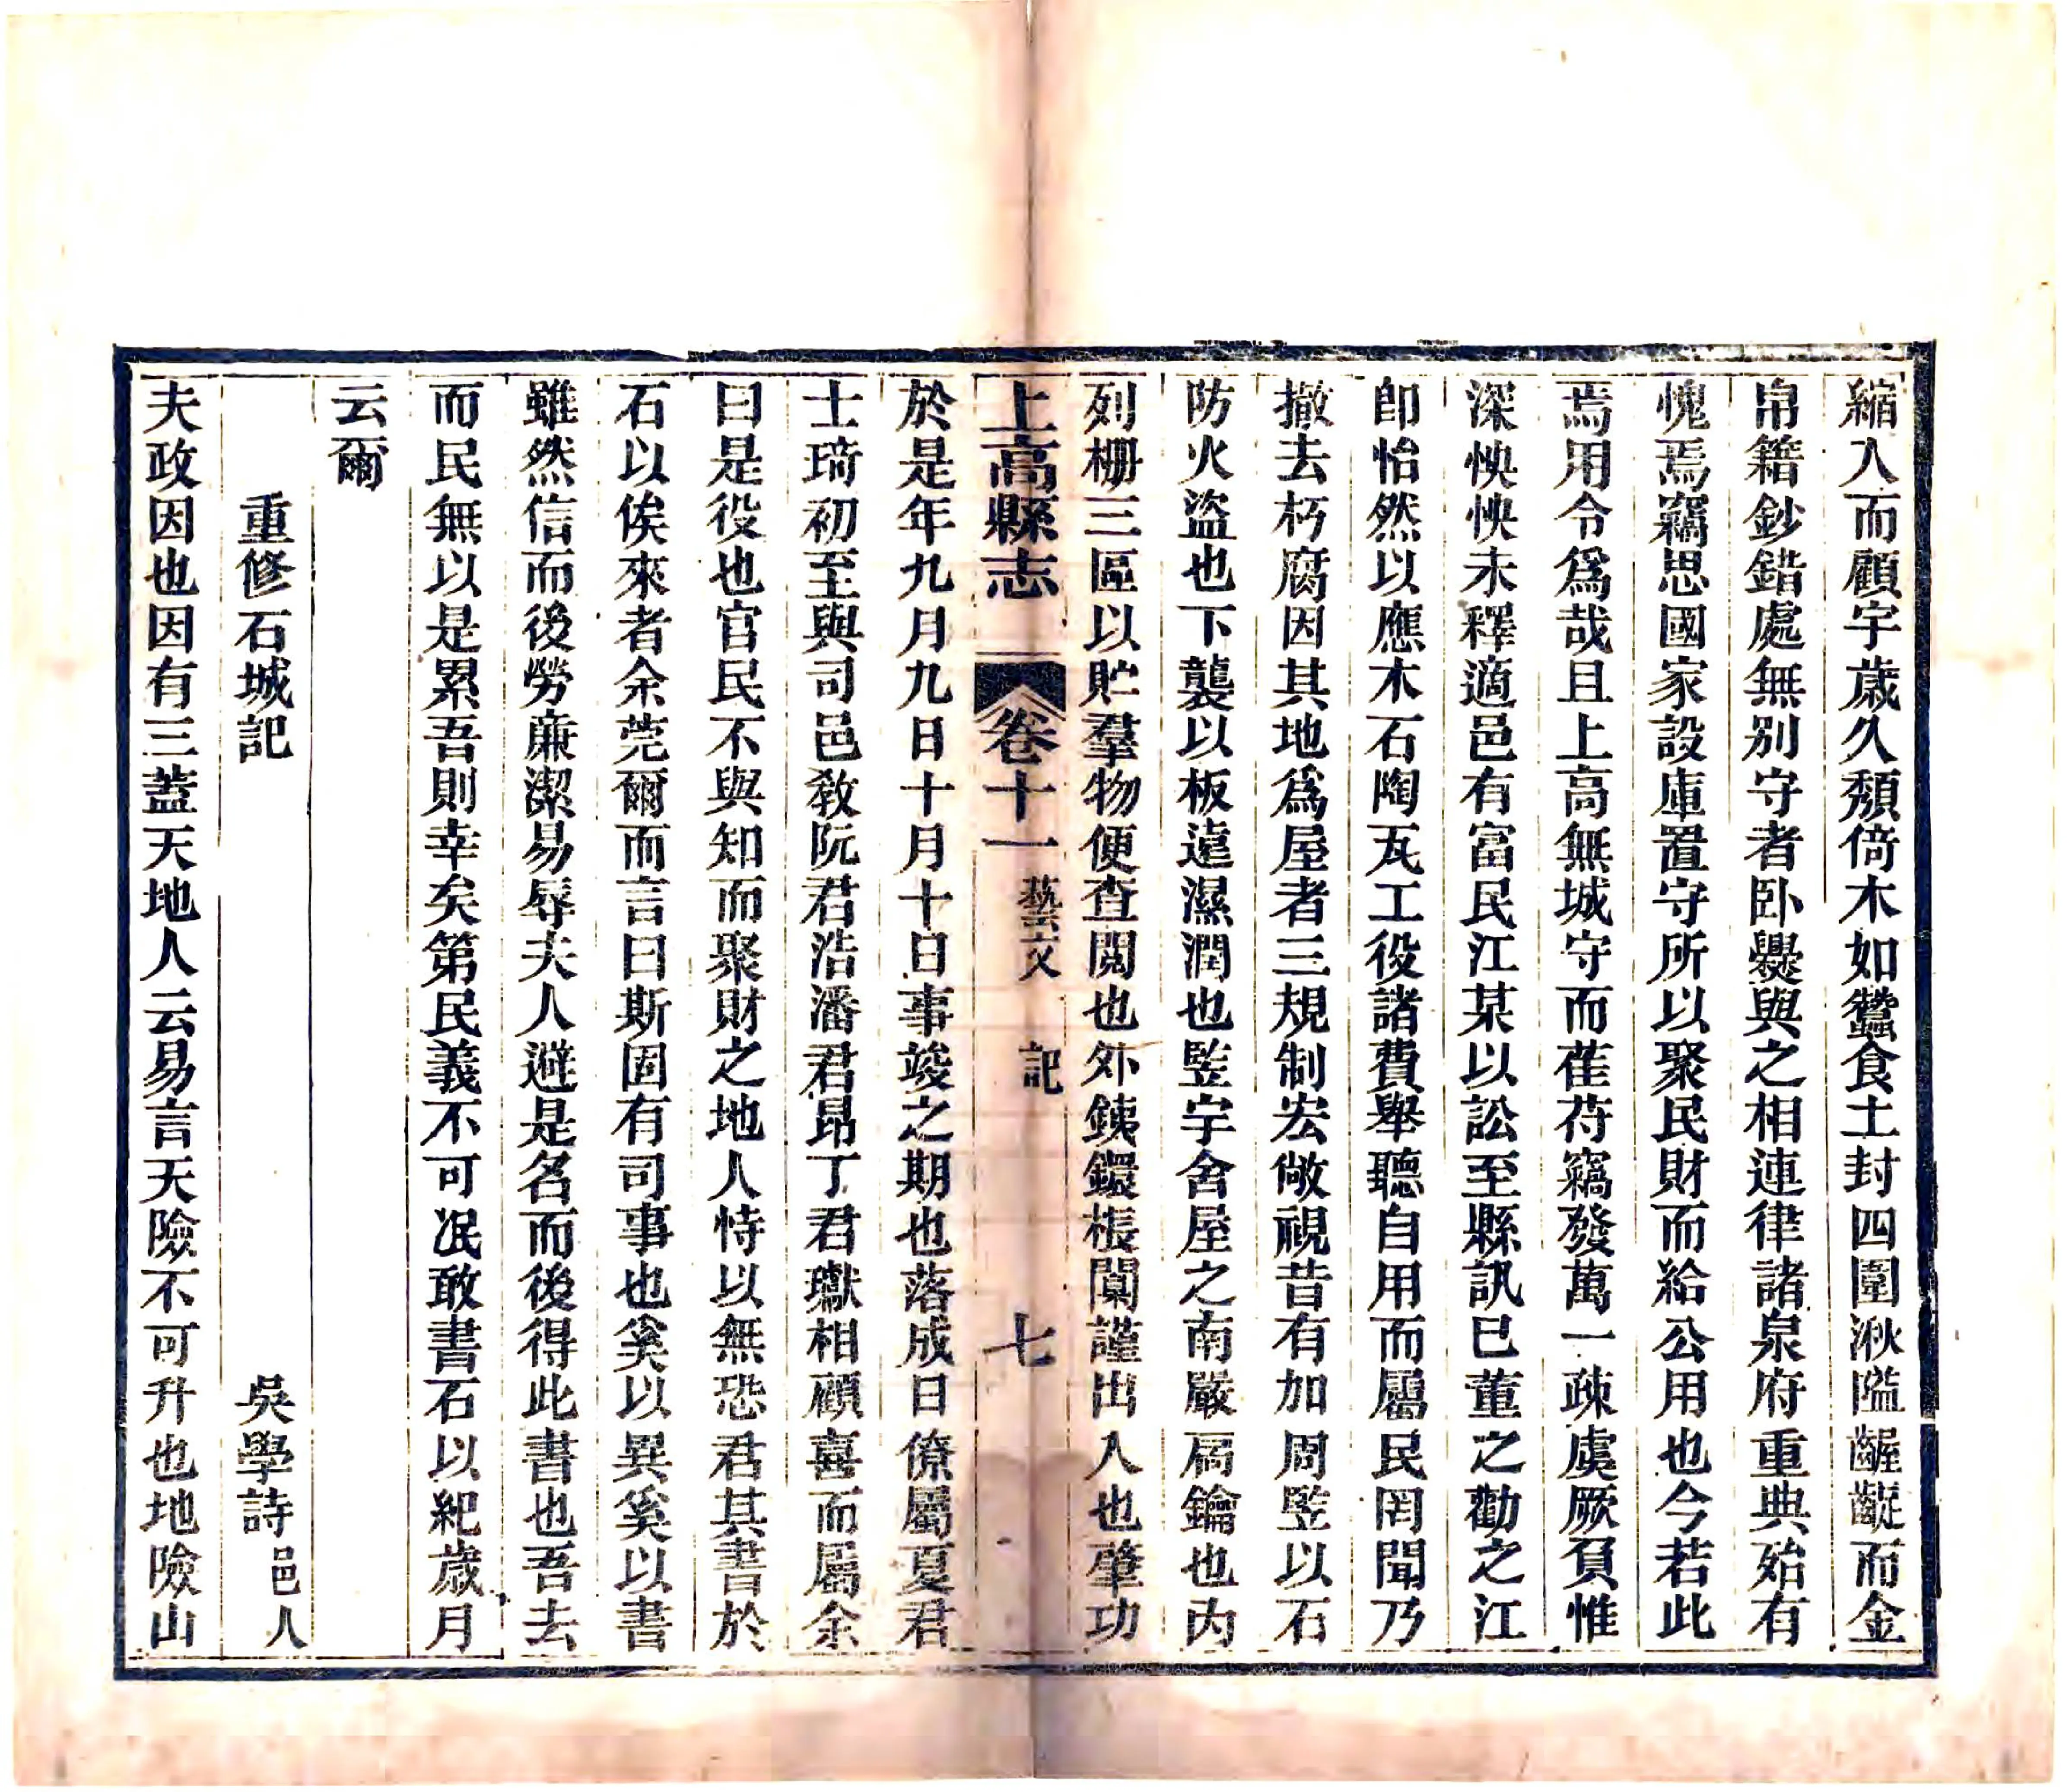 縮入而顧宇歲久頽倚木如蠶食土封四圍湫隘齷齪而金
帛籍鈔錯處無別守者卧爨與之相連律諸泉府重典殆有
愧焉竊思國家設庫置守所以聚民財而給公用也今若此
焉用令爲哉且上高無城守而萑苻竊發萬一疎虞厥負惟
深怏怏未釋適邑有富民江某以訟至縣訊已董之勸之江
卽怡然以應木石陶瓦工役諸費舉聽自用而屬民罔聞乃
撤去朽腐因其地爲屋者三規制宏敞視昔有加周竪以石
防火盜也下襲以板遠濕潤也竪宇舍屋之南嚴扃鑰也內
列柵三區以貯羣物便查閱也外銕鐶棖闑謹出入也肇功
上高縣志 卷十一 藝文 記 七
於是年九月九日十月十日事竣之期也落成日僚屬夏君
士琦初至與司邑敎阮君浩潘君昂丁君瓛相顧喜而屬余
曰是役也官民不與知而聚財之地人恃以無恐君其書於
石以俟來者余莞爾而言曰斯固有司事也奚以異奚以書
雖然信而後勞廉潔易辱夫人避是名而後得此書也吾去
而民無以是累吾則幸矣第民義不可泯敢書石以紀歲月
云爾
重修石城記 吳學詩 邑人
夫政因也因有三蓋天地人云易言天險不可升也地險山